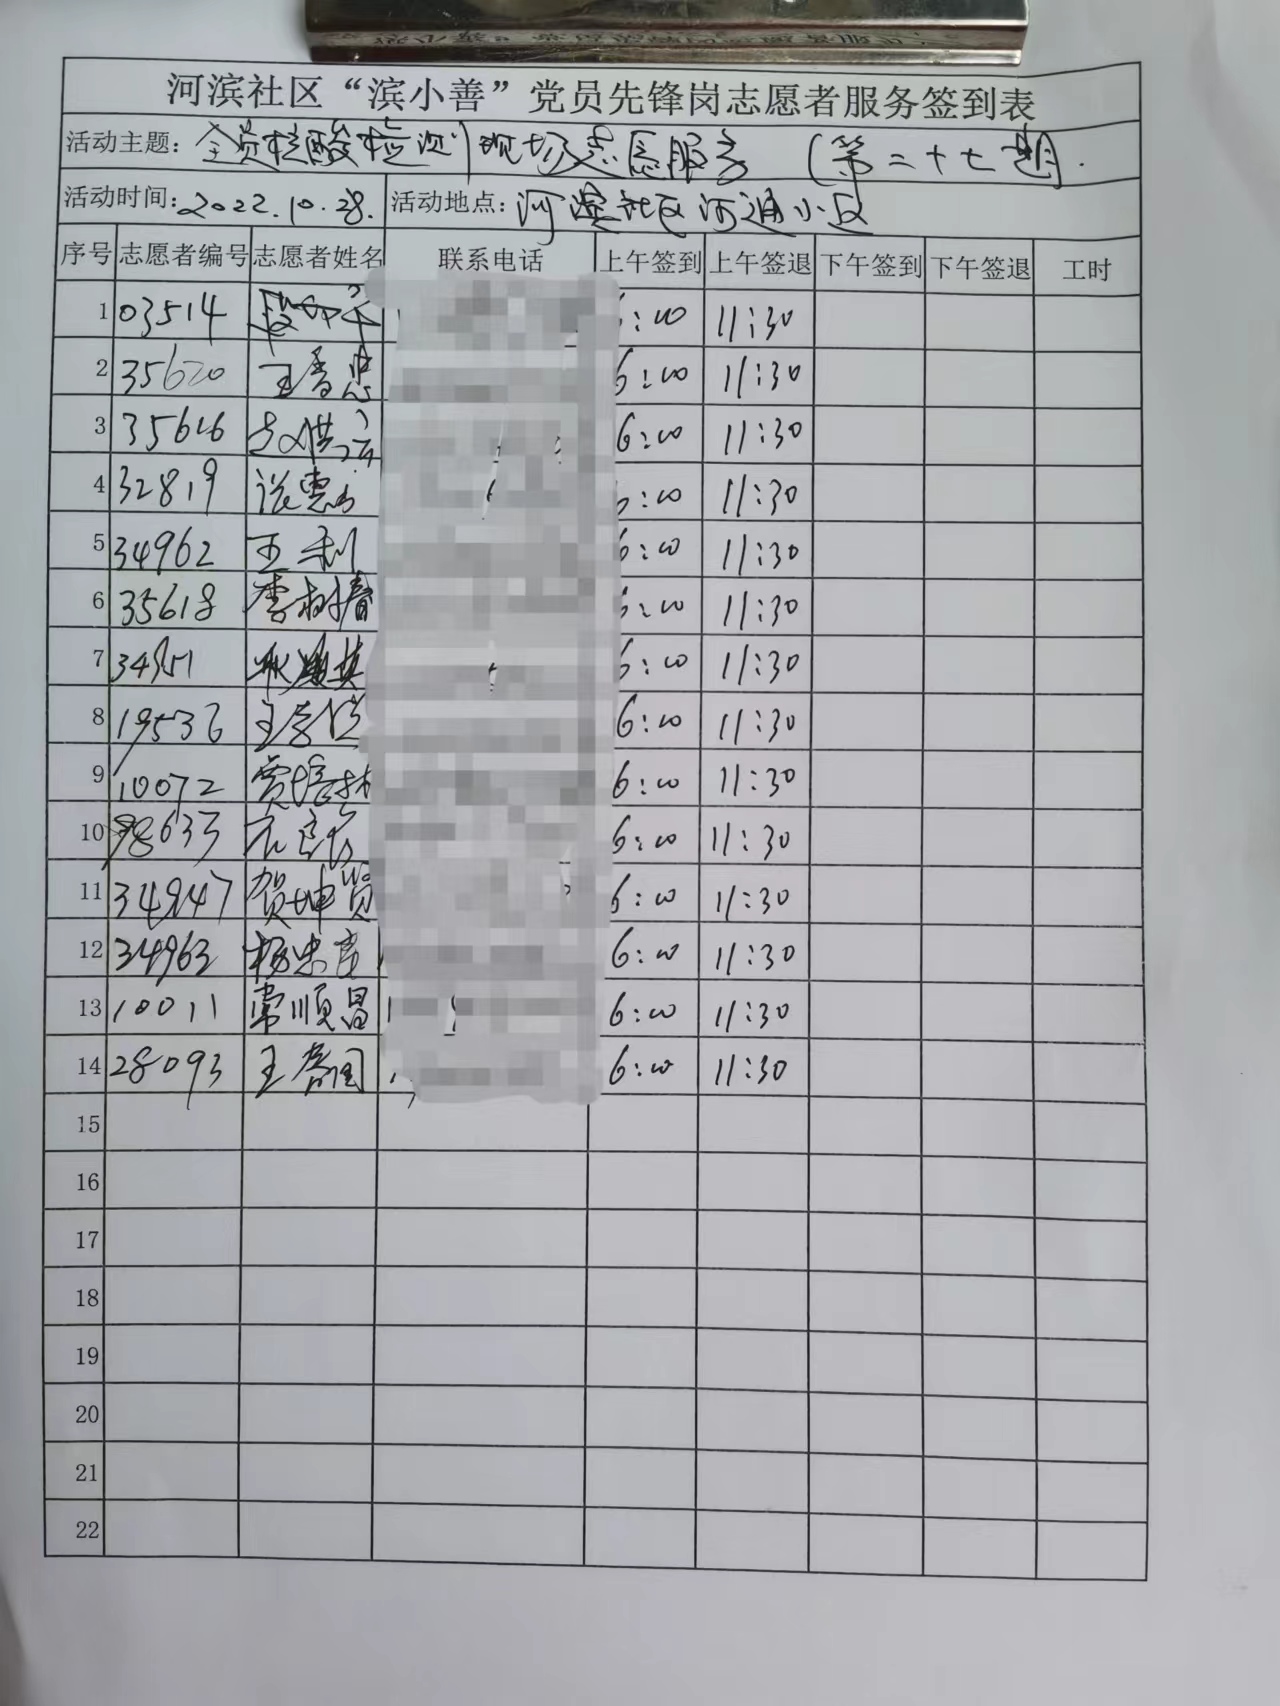 河滨社区“滨小善”党员先锋岗志愿者服务签到表
活动主题：全员核酸检测现场志愿服务（第二十七期）
活动时间：2022.10.28. 活动地点：河滨社区河通小区
序号 志愿者编号 志愿者姓名 联系电话 上午签到 上午签退 下午签到 下午签退 工时
1 03514 6:00 11:30
2 35620 王香忠 6:00 11:30
3 35616 6:00 11:30
4 32819 6:00 11:30
5 34962 王利 6:00 11:30
6 35618 李树春 6:00 11:30
7 6:00 11:30
8 19536 6:00 11:30
9 10072 贾培林 6:00 11:30
10 98633 6:00 11:30
11 34947 贺坤贤 6:00 11:30
12 34963 杨忠彦 6:00 11:30
13 10011 常顺昌 6:00 11:30
14 28093 王富国 6:00 11:30
15
16
17
18
19
20
21
22